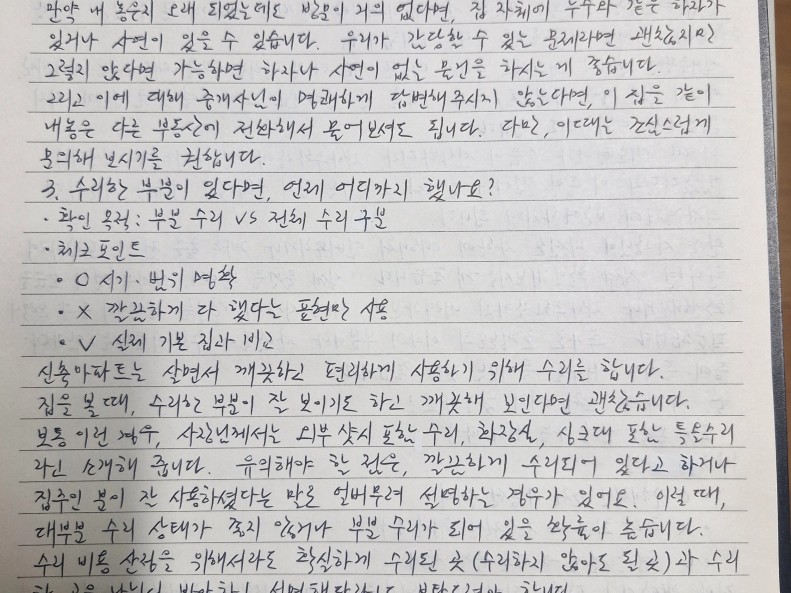 만약 내 놓은지 오래 되었는데도 방문이 거의 없다면, 집 자체에 누수와 같은 하자가
있거나 사연이 있을 수 있습니다. 우리가 감당할 수 있는 문제라면 괜찮지만
그렇지 않다면 가능하면 하자나 사연이 없는 물건을 하시는게 좋습니다.
그리고 이에 대해 중개사님이 명쾌하게 답변해주시지 않는다면, 이 집을 같이
내놓은 다른 부동산에 전화해서 물어보셔도 됩니다. 다만, 이때는 조심스럽게
문의해 보시기를 권합니다.
3. 수리한 부분이 있다면, 언제 어디까지 했나요?
· 확인 목적: 부분 수리 VS 전체 수리 구분
· 체크 포인트
· O 시기·범위 명확
· X 깔끔하게 다 했다는 표현만 사용
· V 실제 기본 집과 비교
신축아파트는 살면서 깨끗하고 편리하게 사용하기 위해 수리를 합니다.
집을 볼 때, 수리한 부분이 잘 보이기도 하고 깨끗해 보인다면 괜찮습니다.
보통 이런 경우, 사장님께서는 외부 샷시 포함 수리, 화장실, 싱크대 포함 특올수리
라고 소개해 줍니다. 유의해야 할 점은, 깔끔하게 수리되어 있다고 하거나
집주인 분이 잘 사용하셨다는 말로 얼버무려 설명하는 경우가 있어요. 이럴 때,
대부분 수리 상태가 좋지 않거나 부분 수리가 되어 있을 확률이 높습니다.
수리 비용 산정을 위해서라도 확실하게 수리된 곳(수리하지 않아도 될 곳)과 수리